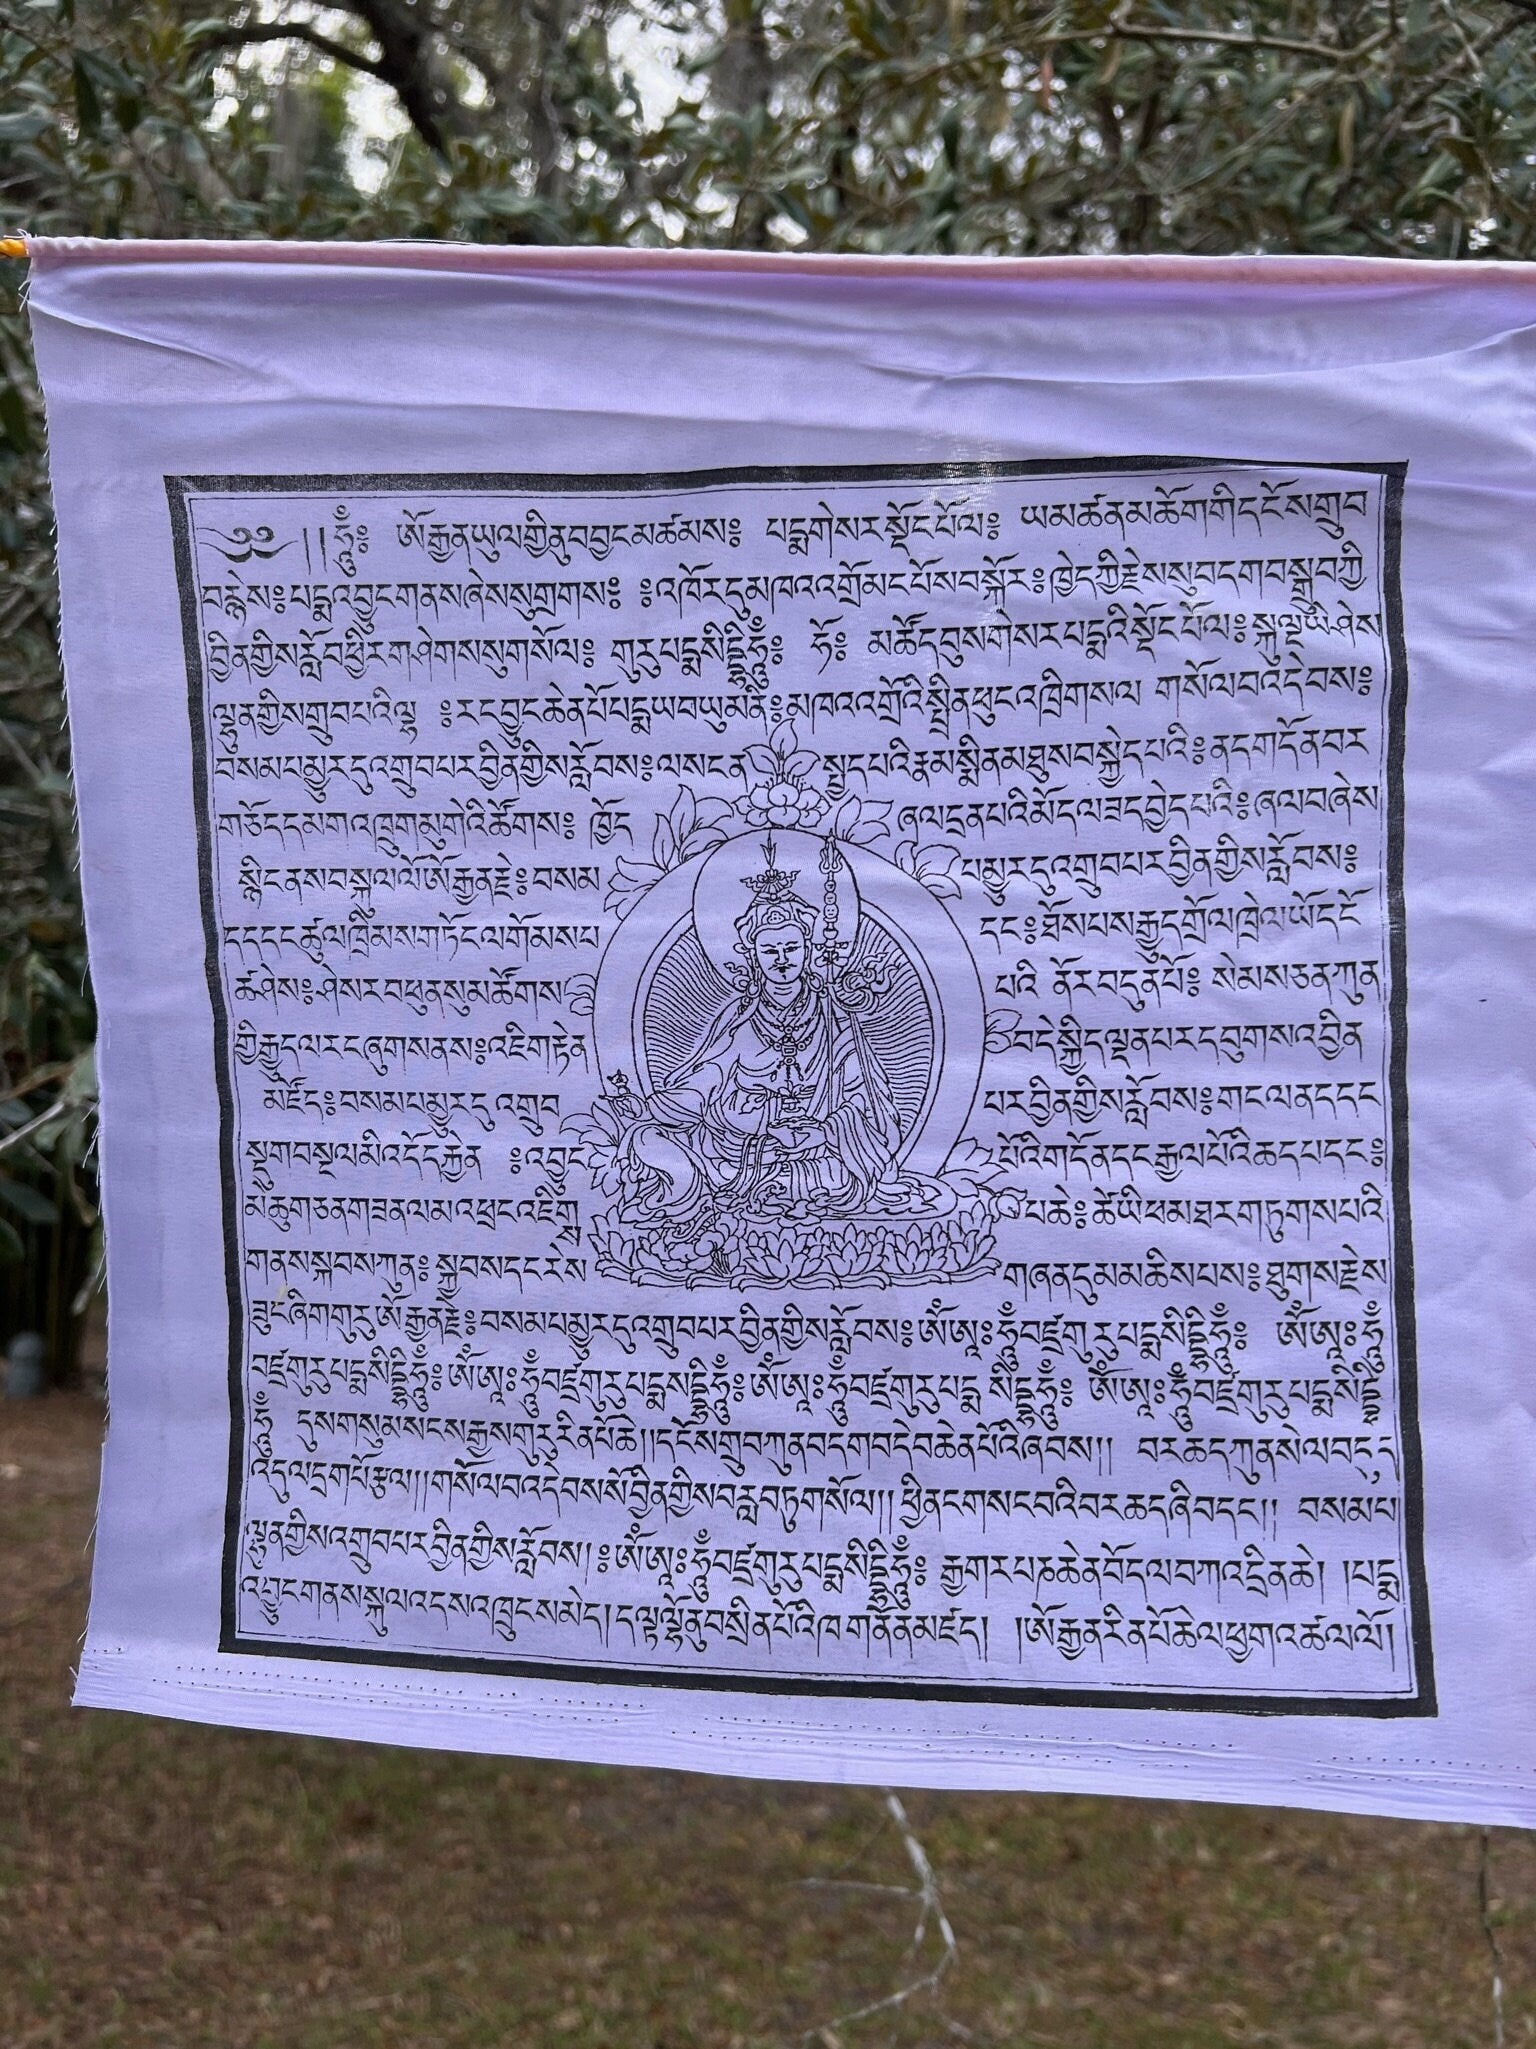 ༄༅།།ཧཱུྃ༔ ཨོ་རྒྱན་ཡུལ་གྱི་ནུབ་བྱང་མཚམས༔ པདྨ་གེ་སར་སྡོང་པོ་ལ༔ ཡ་མཚན་མཆོག་གི་དངོས་གྲུབ
བརྙེས༔པདྨ་འབྱུང་གནས་ཞེས་སུ་གྲགས༔ ༔འཁོར་དུ་མཁའ་འགྲོ་མང་པོས་བསྐོར༔ཁྱེད་ཀྱི་རྗེས་སུ་བདག་བསྒྲུབ་ཀྱི
བྱིན་གྱིས་རློབ་ཕྱིར་གཤེགས་སུ་གསོལ༔ གུ་རུ་པདྨ་སིདྡྷི་ཧཱུྃ༔ ཧོ༔ མཚོ་དབུས་གེ་སར་པདྨའི་སྡོང་པོ་ལ༔སྐུ་ལྔ་ཡེ་ཤེས
ལྷུན་གྱིས་གྲུབ་པའི་ལྷ ༔རང་བྱུང་ཆེན་པོ་པདྨ་ཡབ་ཡུམ་ནི༔མཁའ་འགྲོའི་སྤྲིན་ཕུང་འཁྲིགས་ལ གསོལ་བ་འདེབས༔
བསམ་པ་མྱུར་དུ་འགྲུབ་པར་བྱིན་གྱིས་རློབས༔ལས་ངན སྤྱད་པའི་རྣམ་སྨིན་མཐུས་བསྐྱེད་པའི༔ནད་གདོན་བར
གཅོད་དམག་འཁྲུག་མུ་གེའི་ཚོགས༔ ཁྱོད ཞལ་དྲན་པའི་མོད་ལ་ཟད་བྱེད་པའི༔ཞལ་བཞེས
སྙིང་ནས་བསྐུལ་ལོ་ཨོ་རྒྱན་རྗེ༔བསམ པ་མྱུར་དུ་འགྲུབ་པར་བྱིན་གྱིས་རློབས༔
དད་དང་ཚུལ་ཁྲིམས་གཏོང་ལ་གོམས་པ དང༔ཐོས་པས་རྒྱུད་གྲོལ་ཁྲེལ་ཡོད་ངོ
ཚ་ཤེས༔ཤེས་རབ་ཕུན་སུམ་ཚོགས པའི ནོར་བདུན་པོ༔ སེམས་ཅན་ཀུན
གྱི་རྒྱུད་ལ་རང་ཞུགས་ནས༔འཇིག་རྟེན བདེ་སྐྱིད་ལྡན་པར་དབུགས་འབྱིན
མཛོད༔བསམ་པ་མྱུར་དུ་འགྲུབ པར་བྱིན་གྱིས་རློབས༔གང་ལ་ནད་དང
སྡུག་བསྔལ་མི་འདོད་རྐྱེན ༔འབྱུང པོའི་གདོན་དང་རྒྱལ་པོའི་ཆད་པ་དང༔
མེ་ཆུ་གཅན་གཟན་ལམ་འཕྲང་འཇིགས པ་ཆེ༔ཚེ་ཡི་ཕ་མཐར་གཏུགས་པའི
གནས་སྐབས་ཀུན༔སྐྱབས་དང་རེ་ས གཞན་དུ་མ་མཆིས་པས༔ཐུགས་རྗེས
ཟུང་ཞིག་གུ་རུ་ཨོ་རྒྱན་རྗེ༔བསམ་པ་མྱུར་དུ་འགྲུབ་པར་བྱིན་གྱིས་རློབས༔ཨོཾ་ཨཱཿཧཱུྃ་བཛྲ་གུ་རུ་པདྨ་སིདྡྷི་ཧཱུྃ༔ ཨོཾ་ཨཱཿཧཱུྃ
བཛྲ་གུ་རུ་པདྨ་སིདྡྷི་ཧཱུྃ༔ཨོཾ་ཨཱཿཧཱུྃ་བཛྲ་གུ་རུ་པདྨ་སིདྡྷི་ཧཱུྃ༔ཨོཾ་ཨཱཿཧཱུྃ་བཛྲ་གུ་རུ་པདྨ་སིདྡྷི་ཧཱུྃ༔ ཨོཾ་ཨཱཿཧཱུྃ་བཛྲ་གུ་རུ་པདྨ་སིདྡྷི
ཧཱུྃ དུས་གསུམ་སངས་རྒྱས་གུ་རུ་རིན་པོ་ཆེ།།དངོས་གྲུབ་ཀུན་བདག་བདེ་བ་ཆེན་པོའི་ཞབས།། བར་ཆད་ཀུན་སེལ་བདུད
འདུལ་དྲག་པོ་རྩལ།།གསོལ་བ་འདེབས་སོ་བྱིན་གྱིས་བརླབ་ཏུ་གསོལ།། ཕྱི་ནང་གསང་བའི་བར་ཆད་ཞི་བ་དང།། བསམ་པ
ལྷུན་གྱིས་འགྲུབ་པར་བྱིན་གྱིས་རློབས།༔ཨོཾ་ཨཱཿཧཱུྃ་བཛྲ་གུ་རུ་པདྨ་སིདྡྷི་ཧཱུྃ༔ རྒྱ་གར་པཎ་ཆེན་བོད་ལ་བཀའ་དྲིན་ཆེ། །པདྨ
འབྱུང་གནས་སྐུ་ལ་འདས་འཁྲུངས་མེད།ད་ལྟ་ལྷོ་ནུབ་སྲིན་པོའི་ཁ་གནོན་མཛད། །ཨོ་རྒྱན་རིན་པོ་ཆེ་ལ་ཕྱག་འཚལ་ལོ།